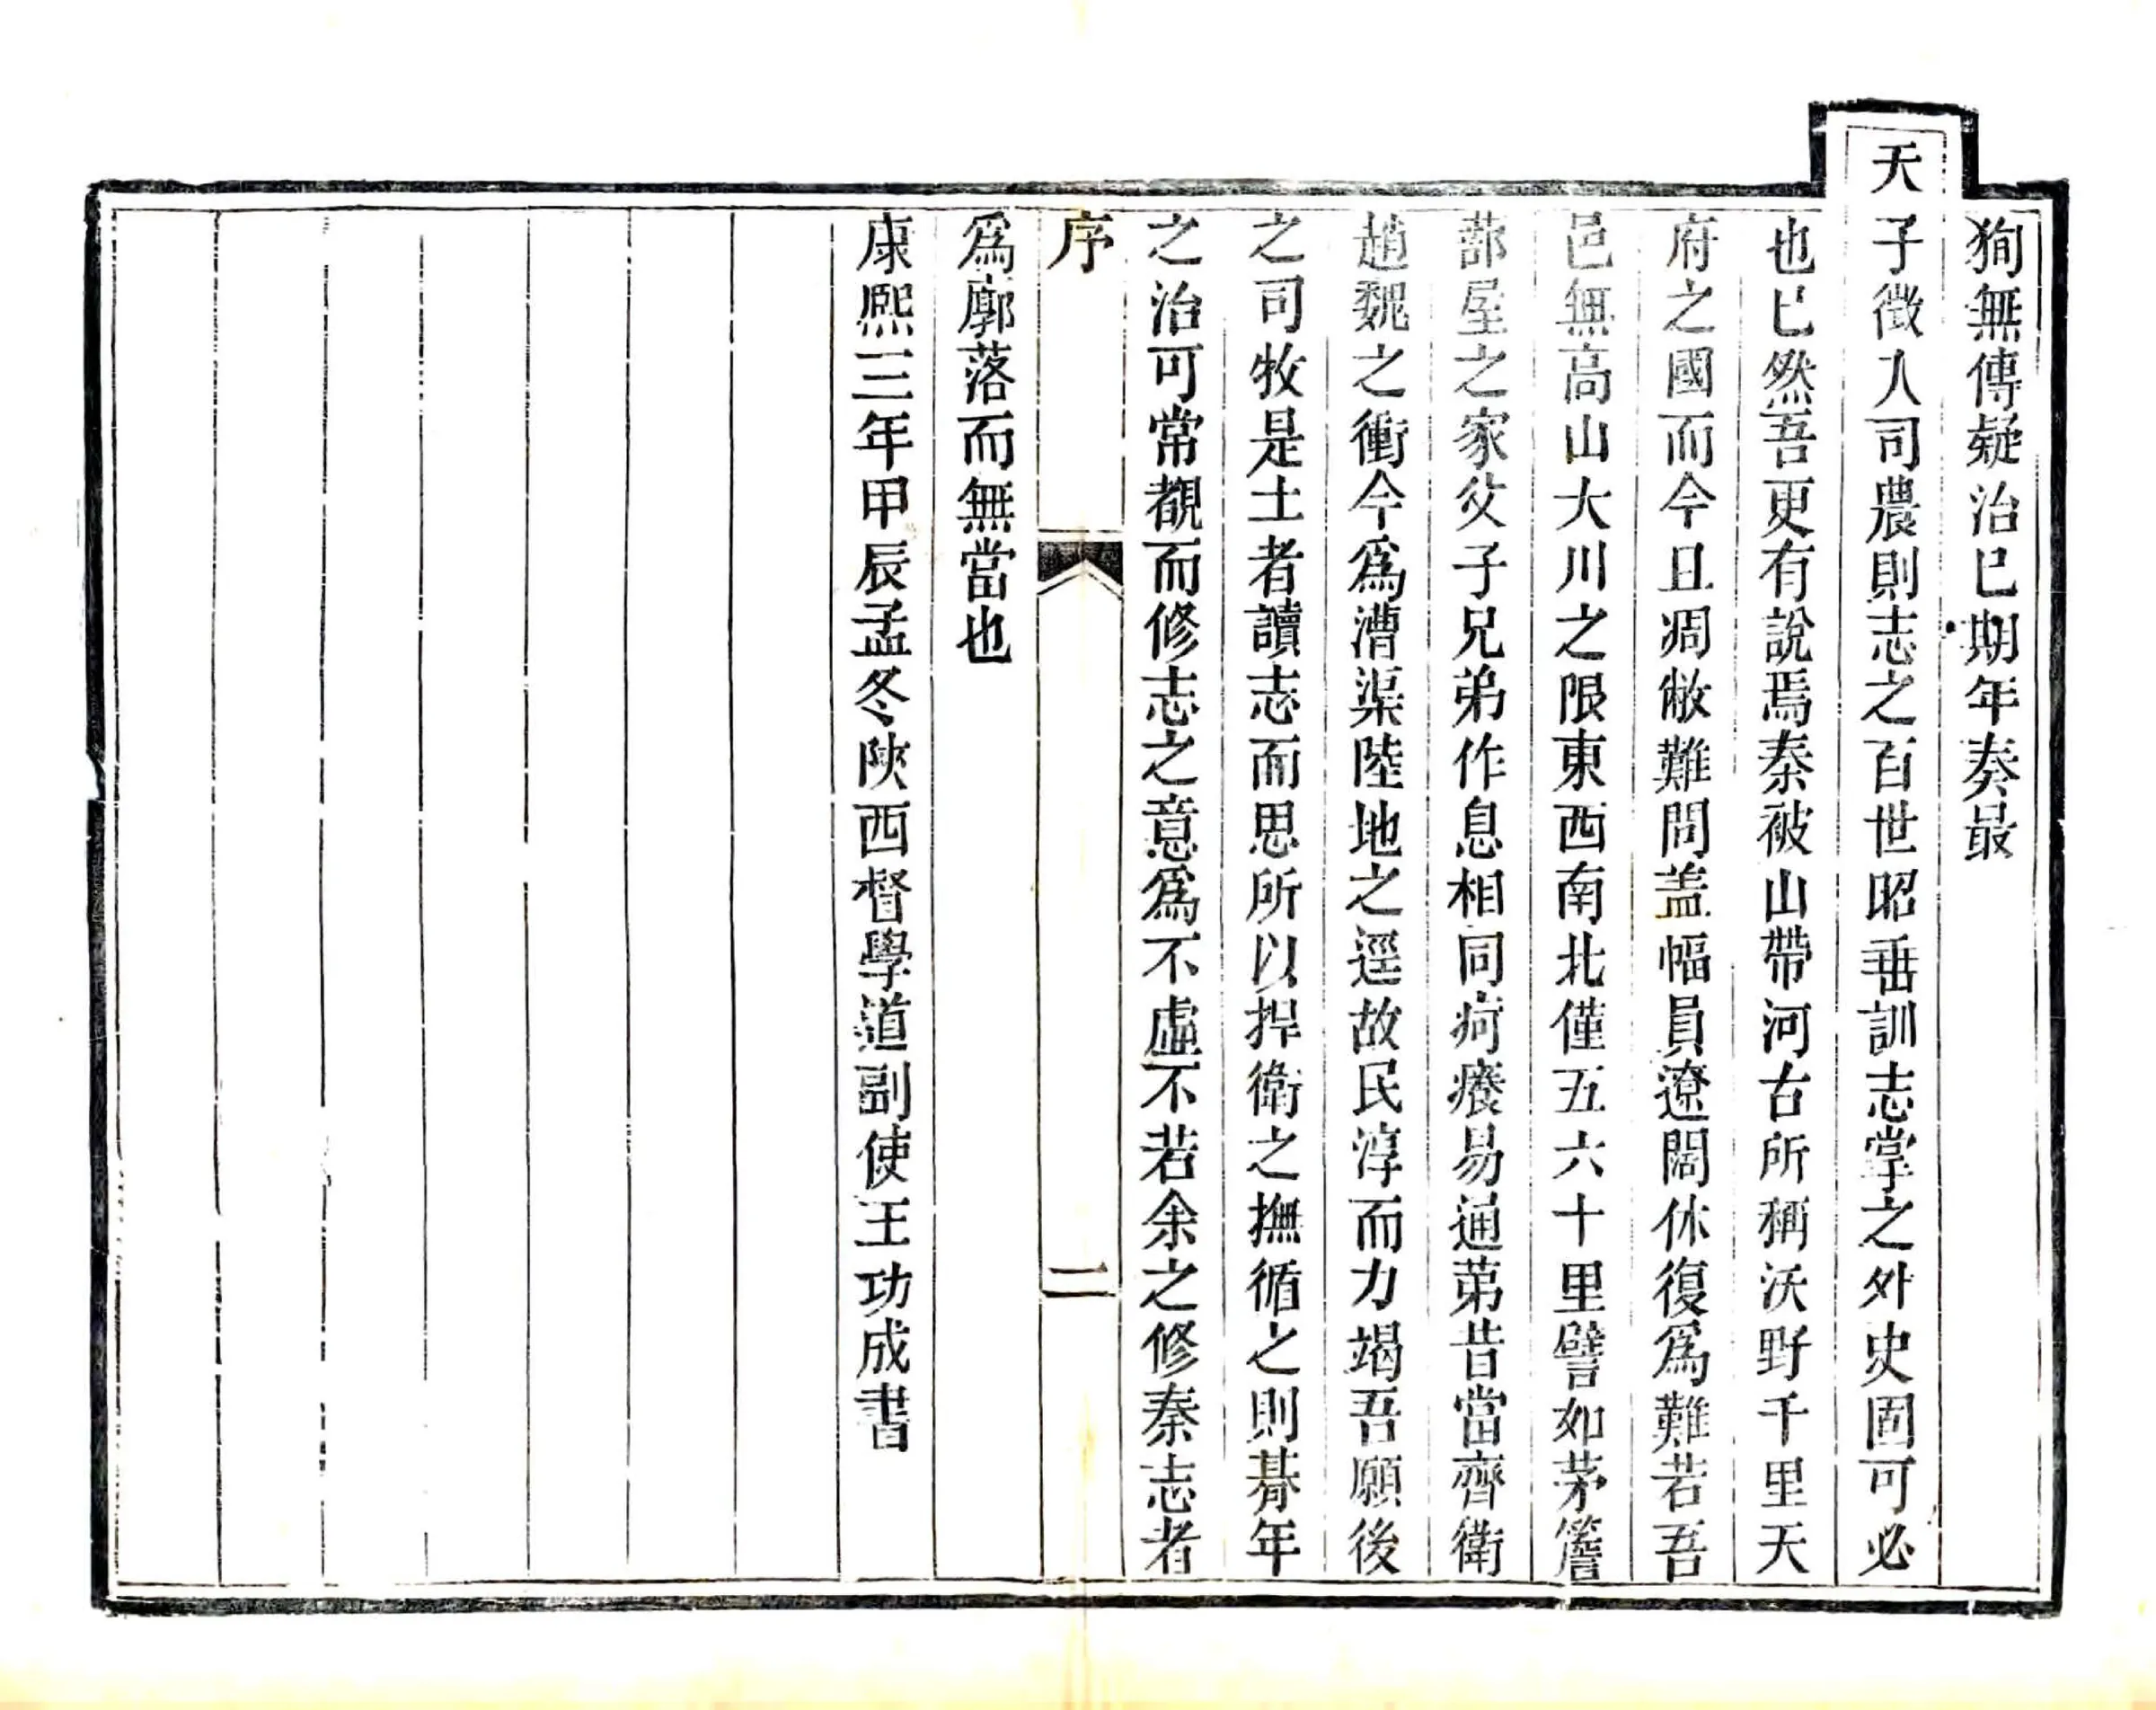 狥無傳疑治已期年奏最
天子徵入司農則志之百世昭垂訓志掌之外史固可必
也已然吾更有說焉秦被山帶河古所稱沃野千里天
府之國而今且凋敝難問盖幅員遼闊休復爲難若吾
邑無高山大川之限東西南北僅五六十里譬如茅簷
蔀屋之家父子兄弟作息相同疴癢易通苐昔當齊衛
趙魏之衝今爲漕渠陸地之逕故民淳而力竭吾願後
之司牧是土者讀志而思所以捍衛之撫循之則朞年
之治可常覩而修志之意爲不虛不若余之修秦志者
序 二
爲廓落而無當也
康熙三年甲辰孟冬陝西督學道副使王功成書